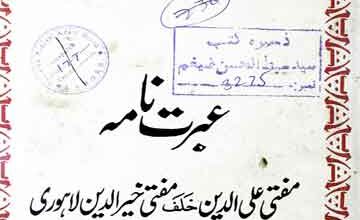 ذخیره کتب
سید سبط الحسن ضیغم
نمبر: 3275
عبرت نامہ
مفتی علی الدین خَلَف مفتی خیر الدین لاہوری